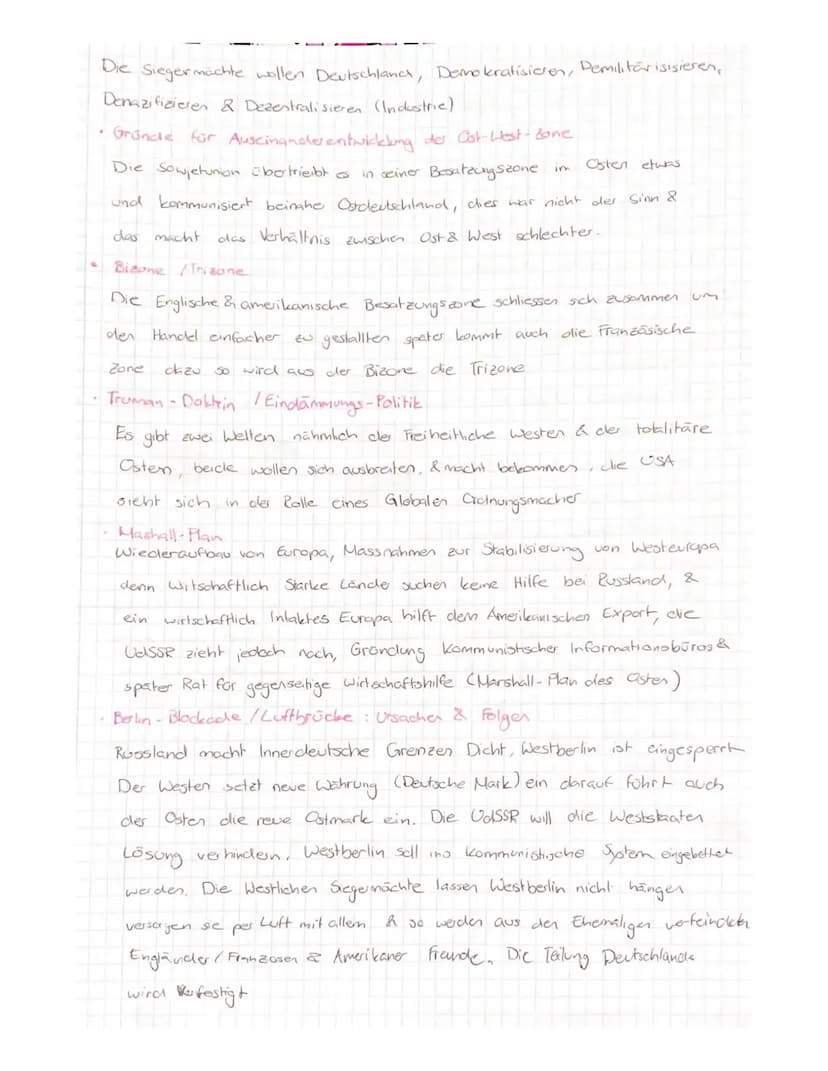 Die Siegermächte wollen Deutschland, Demokratisieren, Demilitärisisieren,
Denazifizieren & Dezentralisieren (Industrie)
• Gründe für Auseinanderentwicklung der Ost-West-Zone
Die Sowjetunion übertreibt es in seiner Besatzungszone im Osten etwas
und kommunisiert beinahe Ostdeutschland, dies war nicht der Sinn &
das macht das Verhältnis zwischen Ost & West schlechter.
• Bizone / Trizone
Die Englische & amerikanische Besatzungszone schliessen sich zusammen um
den Handel einfacher zu gestallten später kommt auch die Französische
Zone dazu so wird aus der Bizone die Trizone
• Truman-Doktrin / Eindämmungs-Politik
Es gibt zwei Welten nähmlich der Freiheitliche Westen & der totalitäre
Osten, beide wollen sich ausbreiten, & macht bekommen, die USA
sieht sich in der Rolle eines Globalen Ordnungsmacher
• Mashall-Plan
Wiederaufbau von Europa, Massnahmen zur Stabilisierung von Westeuropa
denn Wirtschaftlich Starke Lände suchen keine Hilfe bei Russland, &
ein wirtschaftlich Intaktes Europa hilft dem Amerikanischen Export, die
UdSSR zieht jedoch nach, Gründung Kommunistischer Informationsbüros &
später Rat für gegenseitige Wirtschaftshilfe (Marshall-Plan des Osten)
• Berlin-Blockade / Luftbrücke : Ursachen & Folgen
Russland macht Innerdeutsche Grenzen Dicht, Westberlin ist eingesperrt
Der Westen setzt neue Währung (Deutsche Mark) ein darauf führt auch
der Osten die neue Ostmark ein. Die UdSSR will die Weststaaten
Lösung verhindern, Westberlin soll ins Kommunistische System eingebettet
werden. Die Westlichen Siegermächte lassen Westberlin nicht hängen
versorgen sie per Luft mit allem & so werden aus den Ehemaligen verfeindeten
Engländer / Franzosen & Amerikaner Freunde. Die Teilung Deutschlands
wird Verfestigt